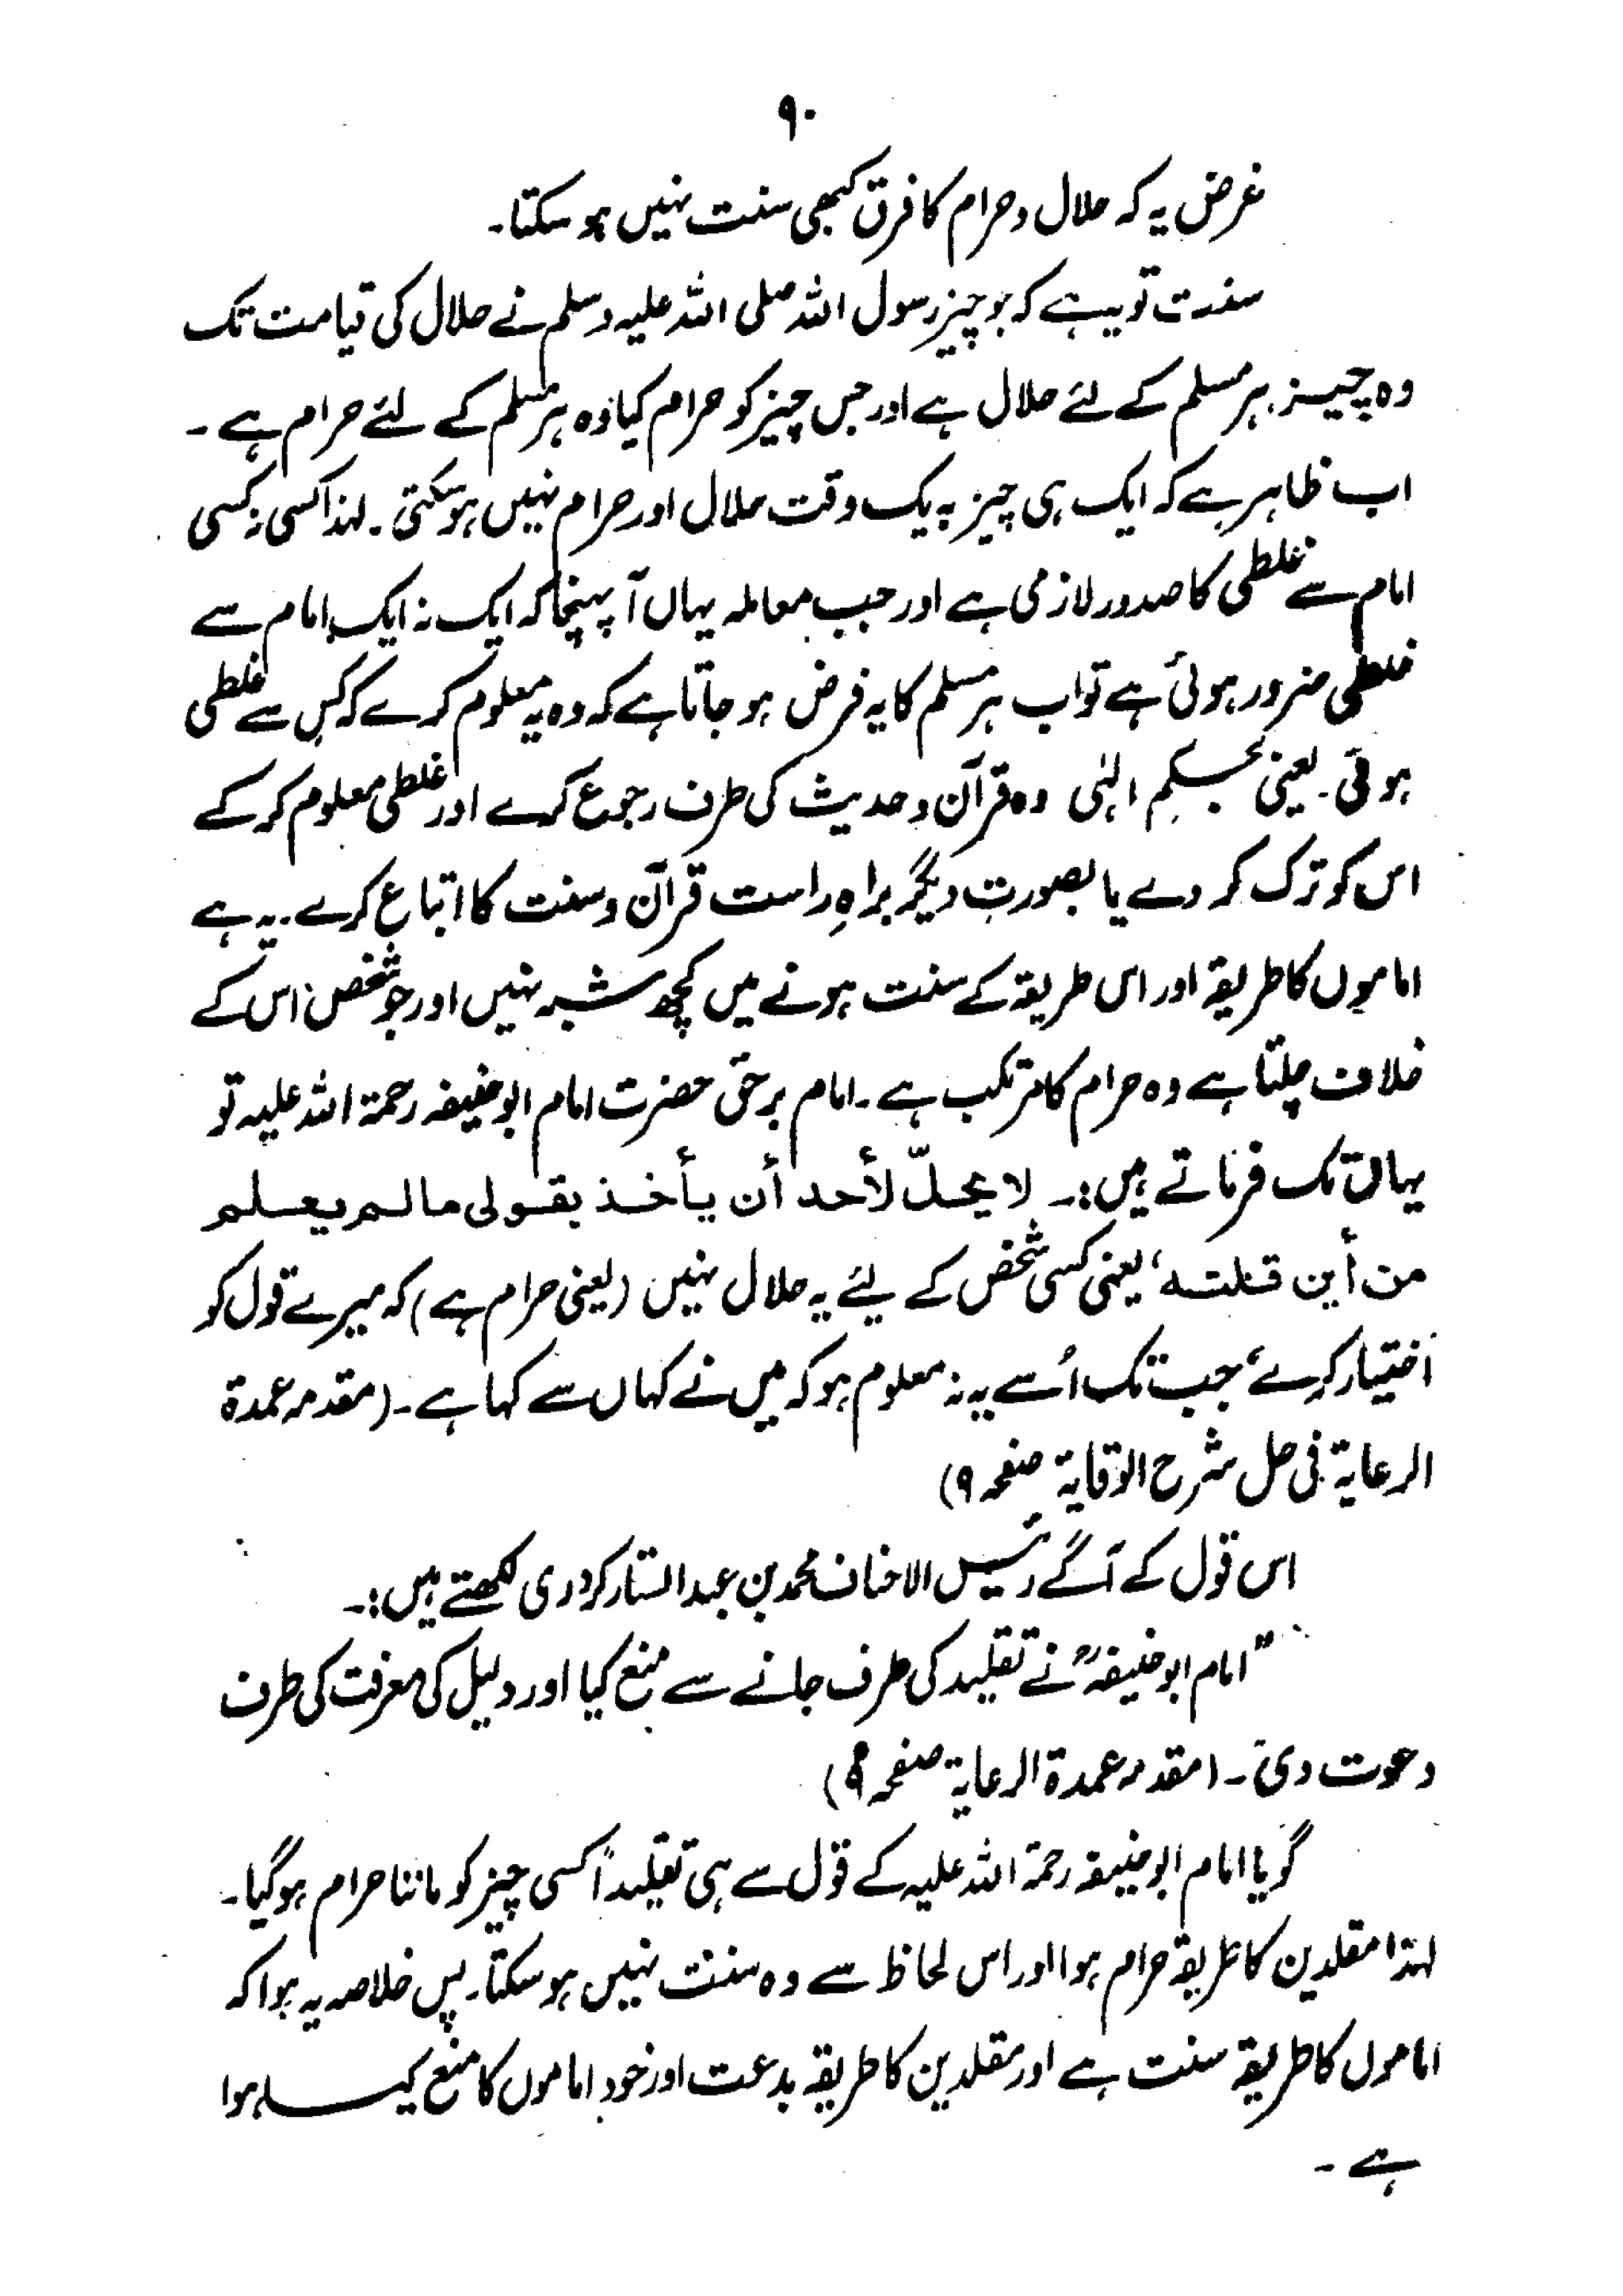 ۹۰
غرض یہ کہ حلال و حرام کا فرق کبھی سنت نہیں ہو سکتا۔
سنت تو یہ ہے کہ جو چیز رسول اللہ صلی اللہ علیہ وسلم نے حلال کی قیامت تک
وہ چیز ہر مسلم کے لئے حلال ہے اور جس چیز کو حرام کیا وہ ہر مسلم کے لئے حرام ہے۔
اب ظاہر ہے کہ ایک ہی چیز بہ یک وقت حلال اور حرام نہیں ہو سکتی۔ لہذا کسی نہ کسی
امام سے غلطی کا صدور لازمی ہے اور جب معاملہ یہاں آ پہنچا کہ ایک نہ ایک امام سے
غلطی ضرور ہوئی ہے تو اب ہر مسلم کا یہ فرض ہو جاتا ہے کہ وہ یہ معلوم کرے کہ کس سے غلطی
ہوئی۔ یعنی بحکم الہٰی وہ قرآن و حدیث کی طرف رجوع کرے اور غلطی معلوم کر کے
اس کو ترک کر دے یا بصورتِ دیگر براہِ راست قرآن و سنت کا اتباع کرے۔ یہ ہے
اماموں کا طریقہ اور اس طریقہ کے سنت ہونے میں کچھ شبہ نہیں اور جو شخص اس کے
خلاف چلتا ہے وہ حرام کا مرتکب ہے۔ امام برحق حضرت امام ابو حنیفہ رحمۃ اللہ علیہ تو
یہاں تک فرماتے ہیں:۔ لا يحلّ لأحد أن يأخذ بقولى مالم يعلم
من أين قلته، یعنی کسی شخص کے لیئے یہ حلال نہیں (یعنی حرام ہے) کہ میرے قول کو
اختیار کرے، جب تک اُسے یہ نہ معلوم ہو کہ میں نے کہاں سے کہا ہے۔ (مقدمہ عمدۃ
الرعایۃ فی حل شرح الوقایۃ صفحہ ۹)
اس قول کے آگے رئیس الاحناف محمد بن عبد الستار کردری لکھتے ہیں:۔
"امام ابو حنیفہؒ نے تقلید کی طرف جانے سے منع کیا اور دلیل کی معرفت کی طرف
دعوت دی"۔ (مقدمہ عمدۃ الرعایۃ صفحہ ۹)
گویا امام ابو حنیفہ رحمۃ اللہ علیہ کے قول سے ہی تقلیداً کسی چیز کو ماننا حرام ہوگیا۔
لہذا مقلدین کا طریقہ حرام ہوا اور اس لحاظ سے وہ سنت نہیں ہو سکتا۔ پس خلاصہ یہ ہوا کہ
اماموں کا طریقہ سنت ہے اور مقلدین کا طریقہ بدعت اور خود اماموں کا منع کیا ہوا
ہے۔